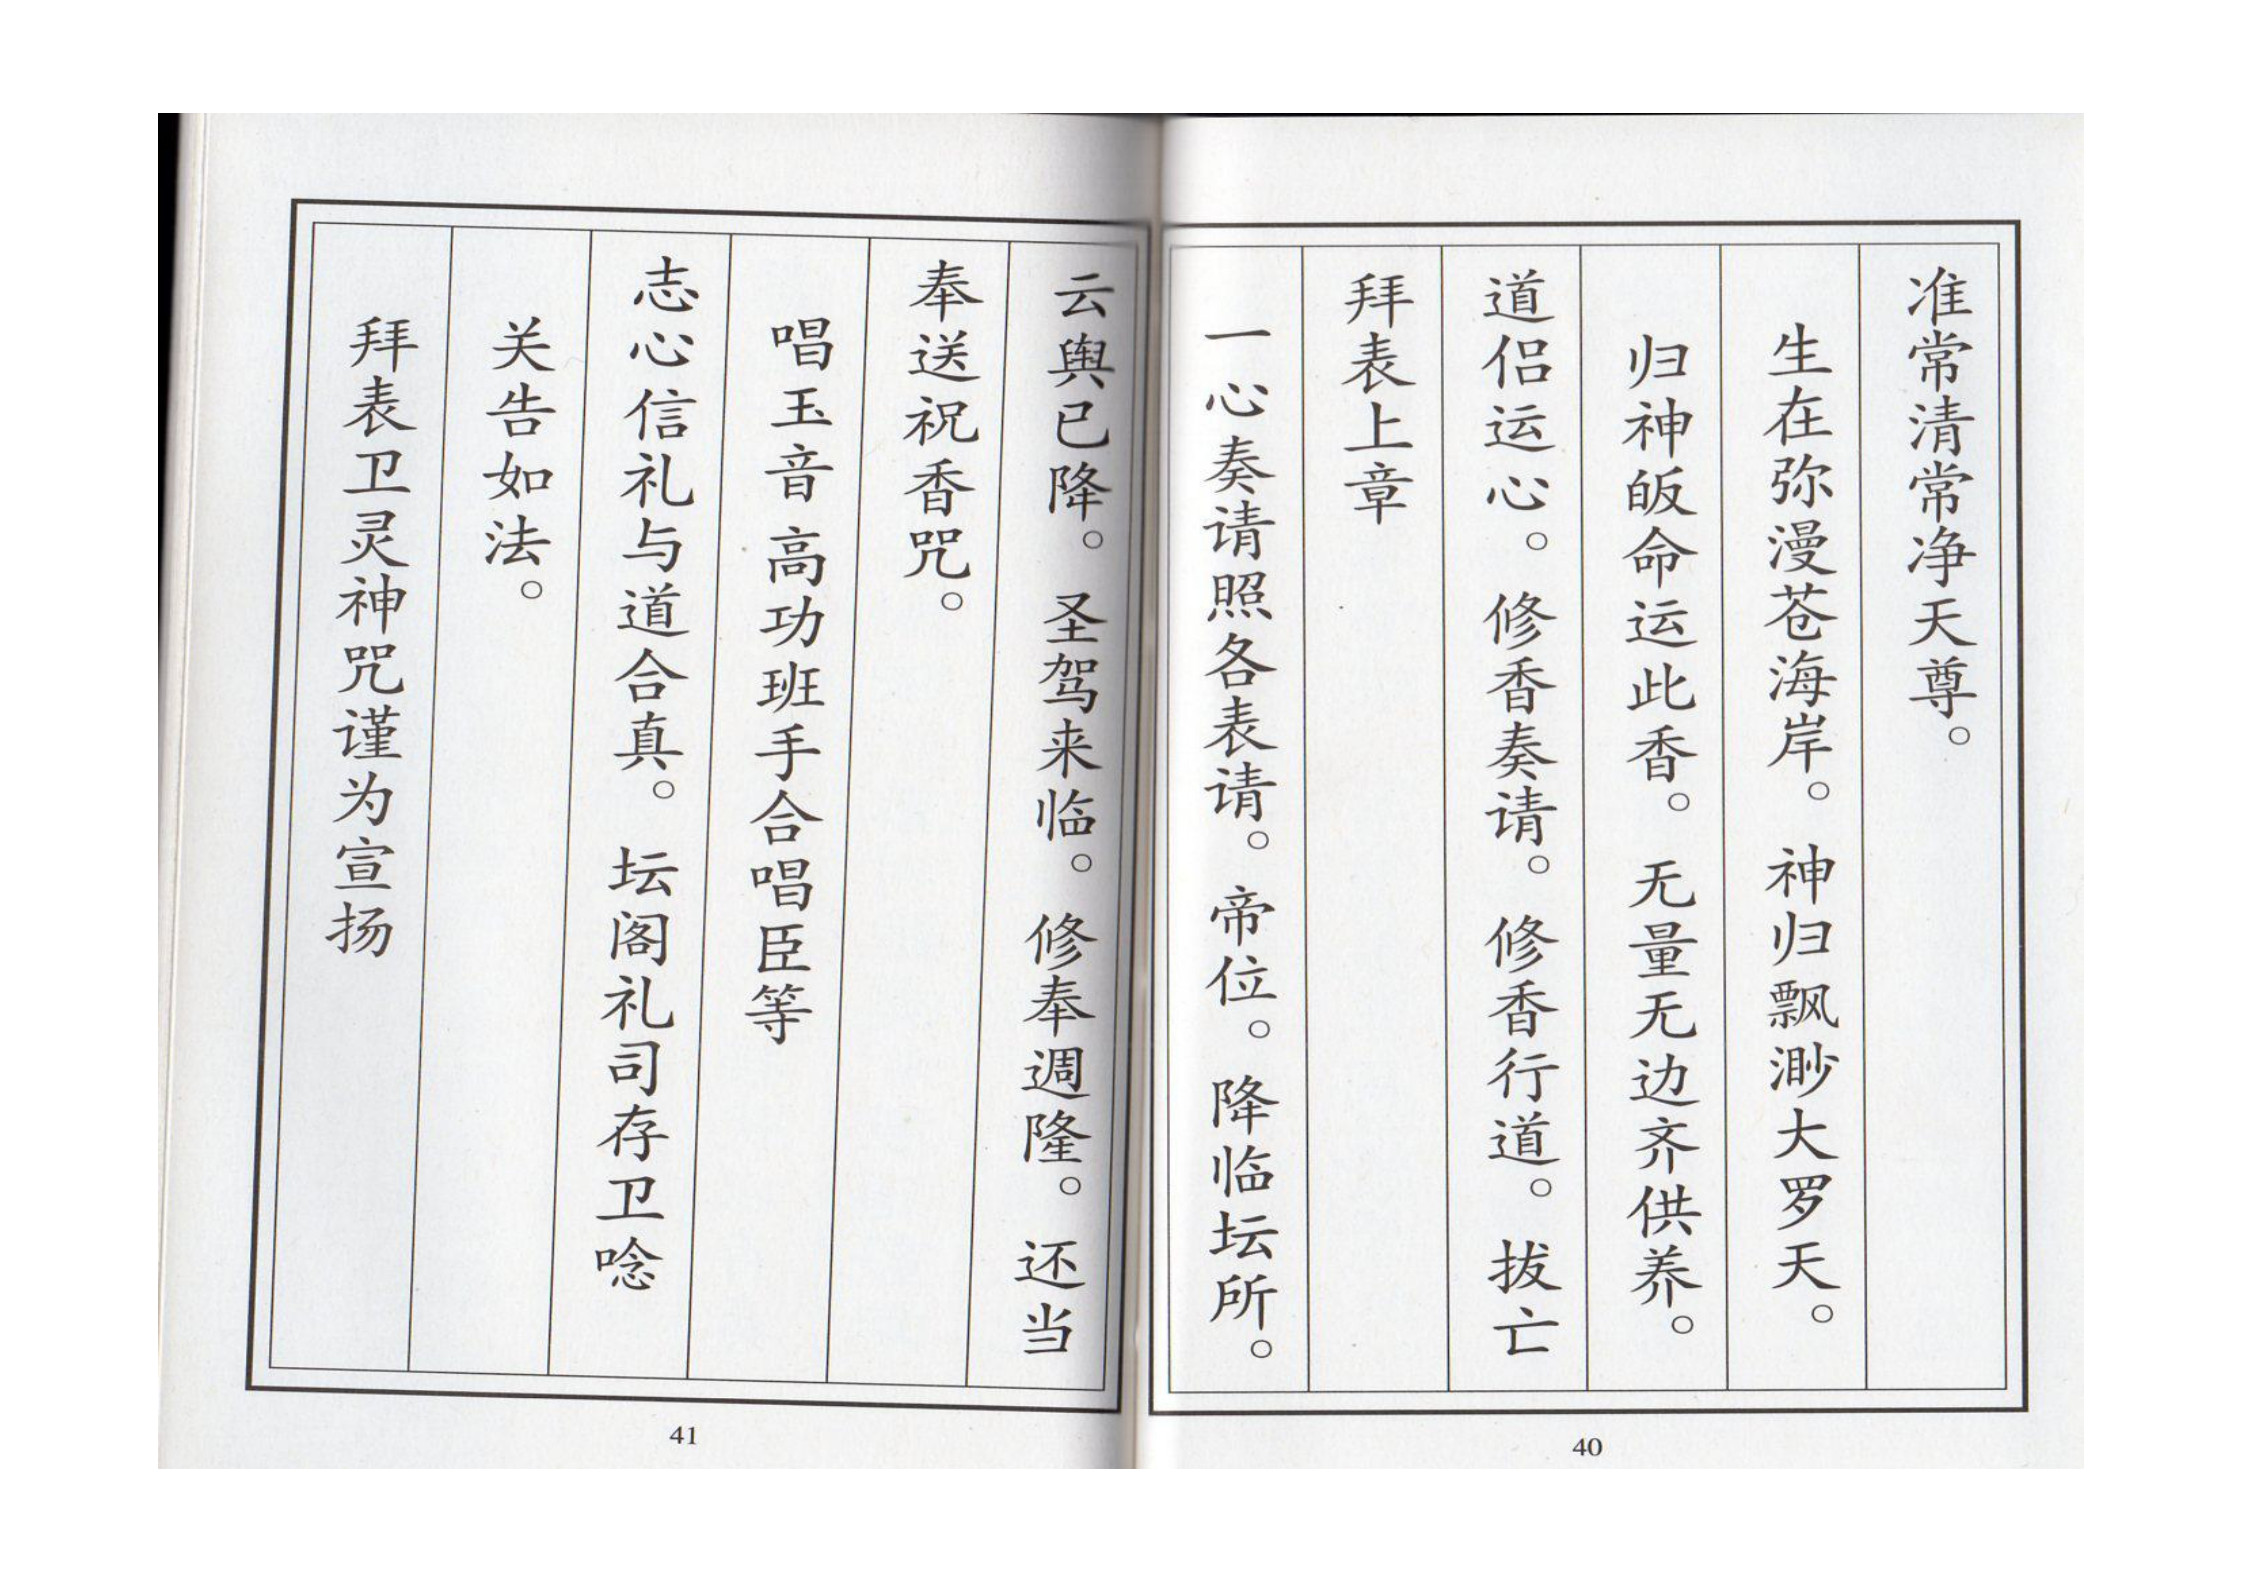 准常清常净天尊。
生在弥漫苍海岸。神归飘渺大罗天。
归神皈命运此香。无量无边齐供养。
道侣运心。修香奏请。修香行道。拔亡
拜表上章
一心奏请照各表请。帝位。降临坛所。
40
云舆已降。圣驾来临。修奉週隆。还当
奉送祝香咒。
唱玉音高功班手合唱臣等
志心信礼与道合真。坛阁礼司存卫唸
关告如法。
拜表卫灵神咒谨为宣扬
41